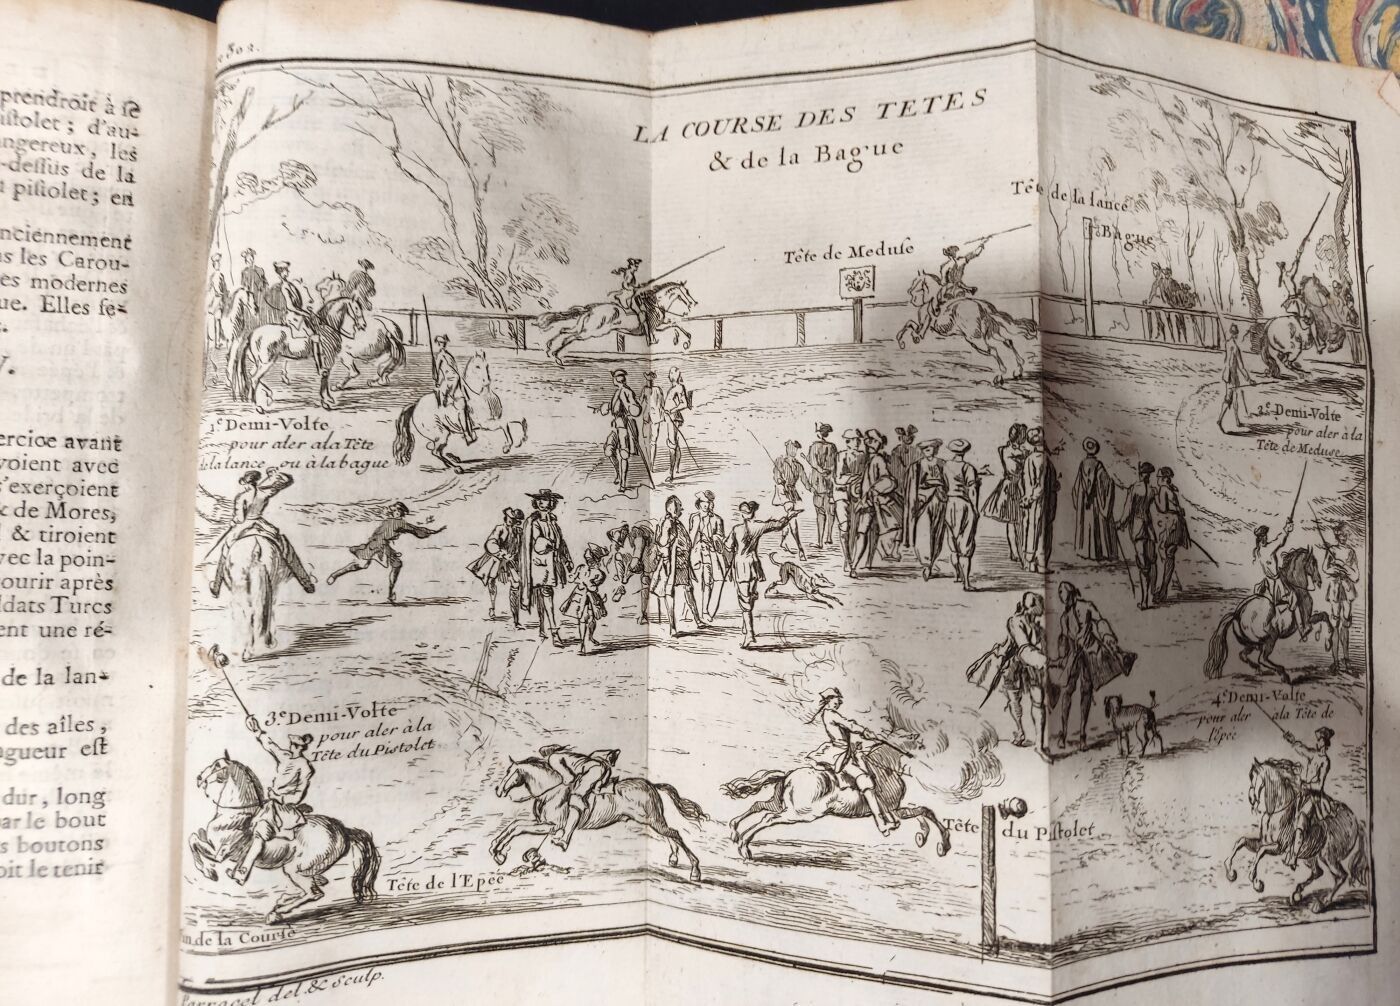 prendroit à se
istolet; d'au-
angereux, les
-dessus de la
pistolet; en
nciennement
s les Carou-
es modernes
ue. Elles se-
ercice avant
voient avec
s'exerçoient
& de Mores,
& tiroient
vec la poin-
courir après
ldats Turcs
ent une ré-
de la lan-
des aîles,
gueur est
dur, long
par le bout
s boutons
oit le tenir
LA COURSE DES TETES
& de la Bague
Tête de la lance
Bague
Tête de Meduse
1.e Demi-Volte
pour aler a la Tête
de la lance ou à la bague
2.e Demi-Volte
pour aler à la
Tête de Meduse
3.e Demi-Volte
pour aler à la
Tête du Pistolet
4.e Demi-Volte
pour aler à la Tête de
l'épée
Tête de l'Epée
Tête du Pistolet
de la Course
Parracel del. & Sculp.